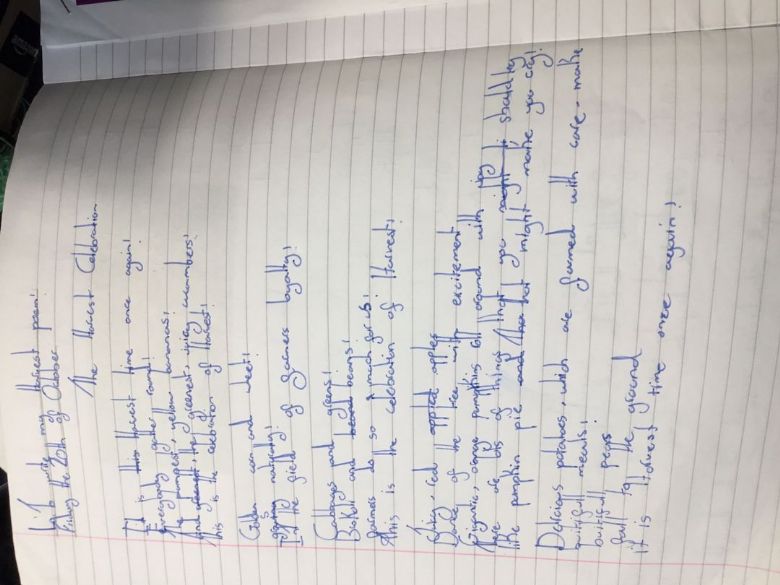 L.I to write my Harvest poem!
Friday the 20th of October
The Harvest Celebration
It is this Harvest time once again!
Everybody gather round!
The plumpest, yellow bananas!
And the greenest, juicy cucumbers!
This is the celebration of Harvest!
Golden corn and wheat!
Is
naturally!
In the field of farmers loyally!
Cabbages and greens!
Brokoli and beans!
farmers do so much for us!
This is the celebration of Harvest!
red apples
of the trees with excitement
Gigantic, orange pumpkins all around with joy
Here are lots of things that you might should try
like pumpkin pie and that might make you cry!
Delicious potatoes, which are farmed with care, make
meals!
pears
fall to the ground
it is Harvest time once again!